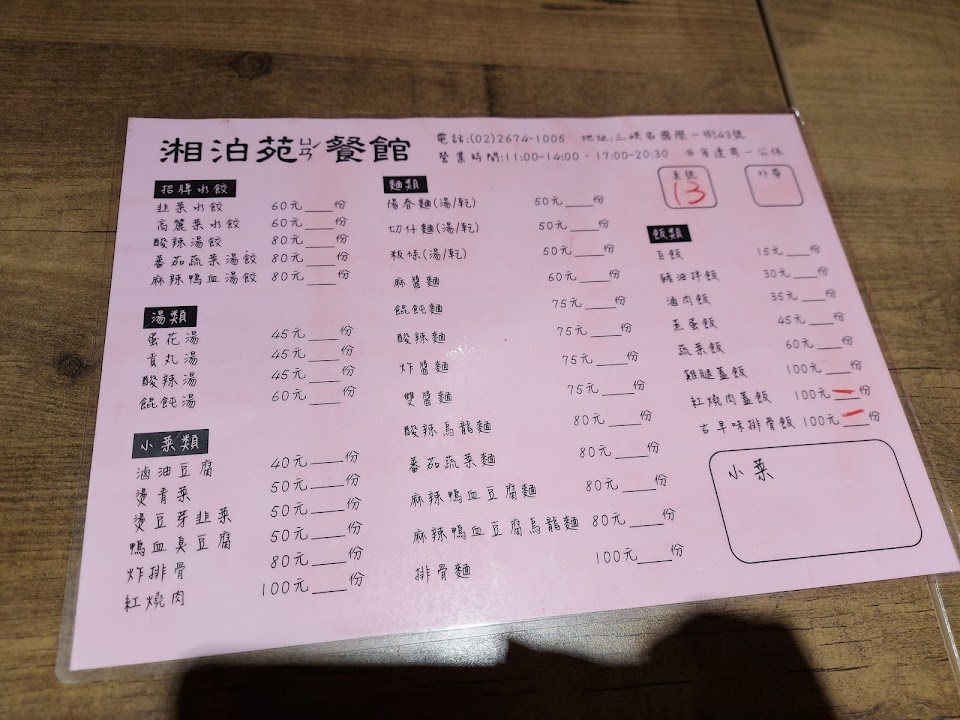 湘泊苑ㄩㄢˋ餐館
電話:(02)2674-1005 地址:三峽區國際一街43號
營業時間:11:00~14:00 · 17:00~20:30 ※每逢周一公休
桌號
13
外帶
招牌水餃
韭菜水餃 60元___份
高麗菜水餃 60元___份
酸辣湯餃 80元___份
蕃茄蔬菜湯餃 80元___份
麻辣鴨血湯餃 80元___份
湯類
蛋花湯 45元___份
貢丸湯 45元___份
酸辣湯 45元___份
餛飩湯 60元___份
小菜類
滷油豆腐 40元___份
燙青菜 50元___份
燙豆芽韭菜 50元___份
鴨血臭豆腐 50元___份
炸排骨 80元___份
紅燒肉 100元___份
麵類
陽春麵(湯/乾) 50元___份
切仔麵(湯/乾) 50元___份
粄條(湯/乾) 50元___份
麻醬麵 60元___份
餛飩麵 75元___份
酸辣麵 75元___份
炸醬麵 75元___份
雙醬麵 75元___份
酸辣烏龍麵 80元___份
蕃茄蔬菜麵 80元___份
麻辣鴨血豆腐麵 80元___份
麻辣鴨血豆腐烏龍麵 80元___份
排骨麵 100元___份
飯類
白飯 15元___份
豬油拌飯 30元___份
滷肉飯 35元___份
蔥蛋飯 45元___份
蔬菜飯 60元___份
雞腿蓋飯 100元___份
紅燒肉蓋飯 100元___份
古早味排骨飯 100元___份
小菜